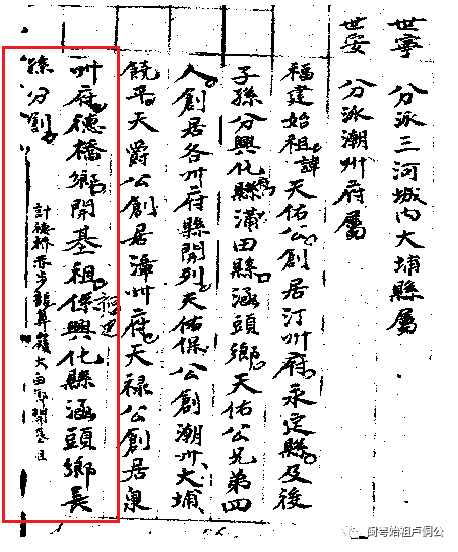 世寧 分派三河城內大埔縣屬
世安 分派潮州府屬
福建始祖諱天佑公創居汀州府永定縣及後
子孫分興化縣蒲田縣涵頭鄉天佑公兄弟四
人創居各州府縣開列天佑保公創潮州大埔
饒平天爵公創居漳州府天禄公創居泉
州府德橋鄉開基祖係興化縣涵頭鄉長
福建
孫分創
闽粤始祖卢侗公